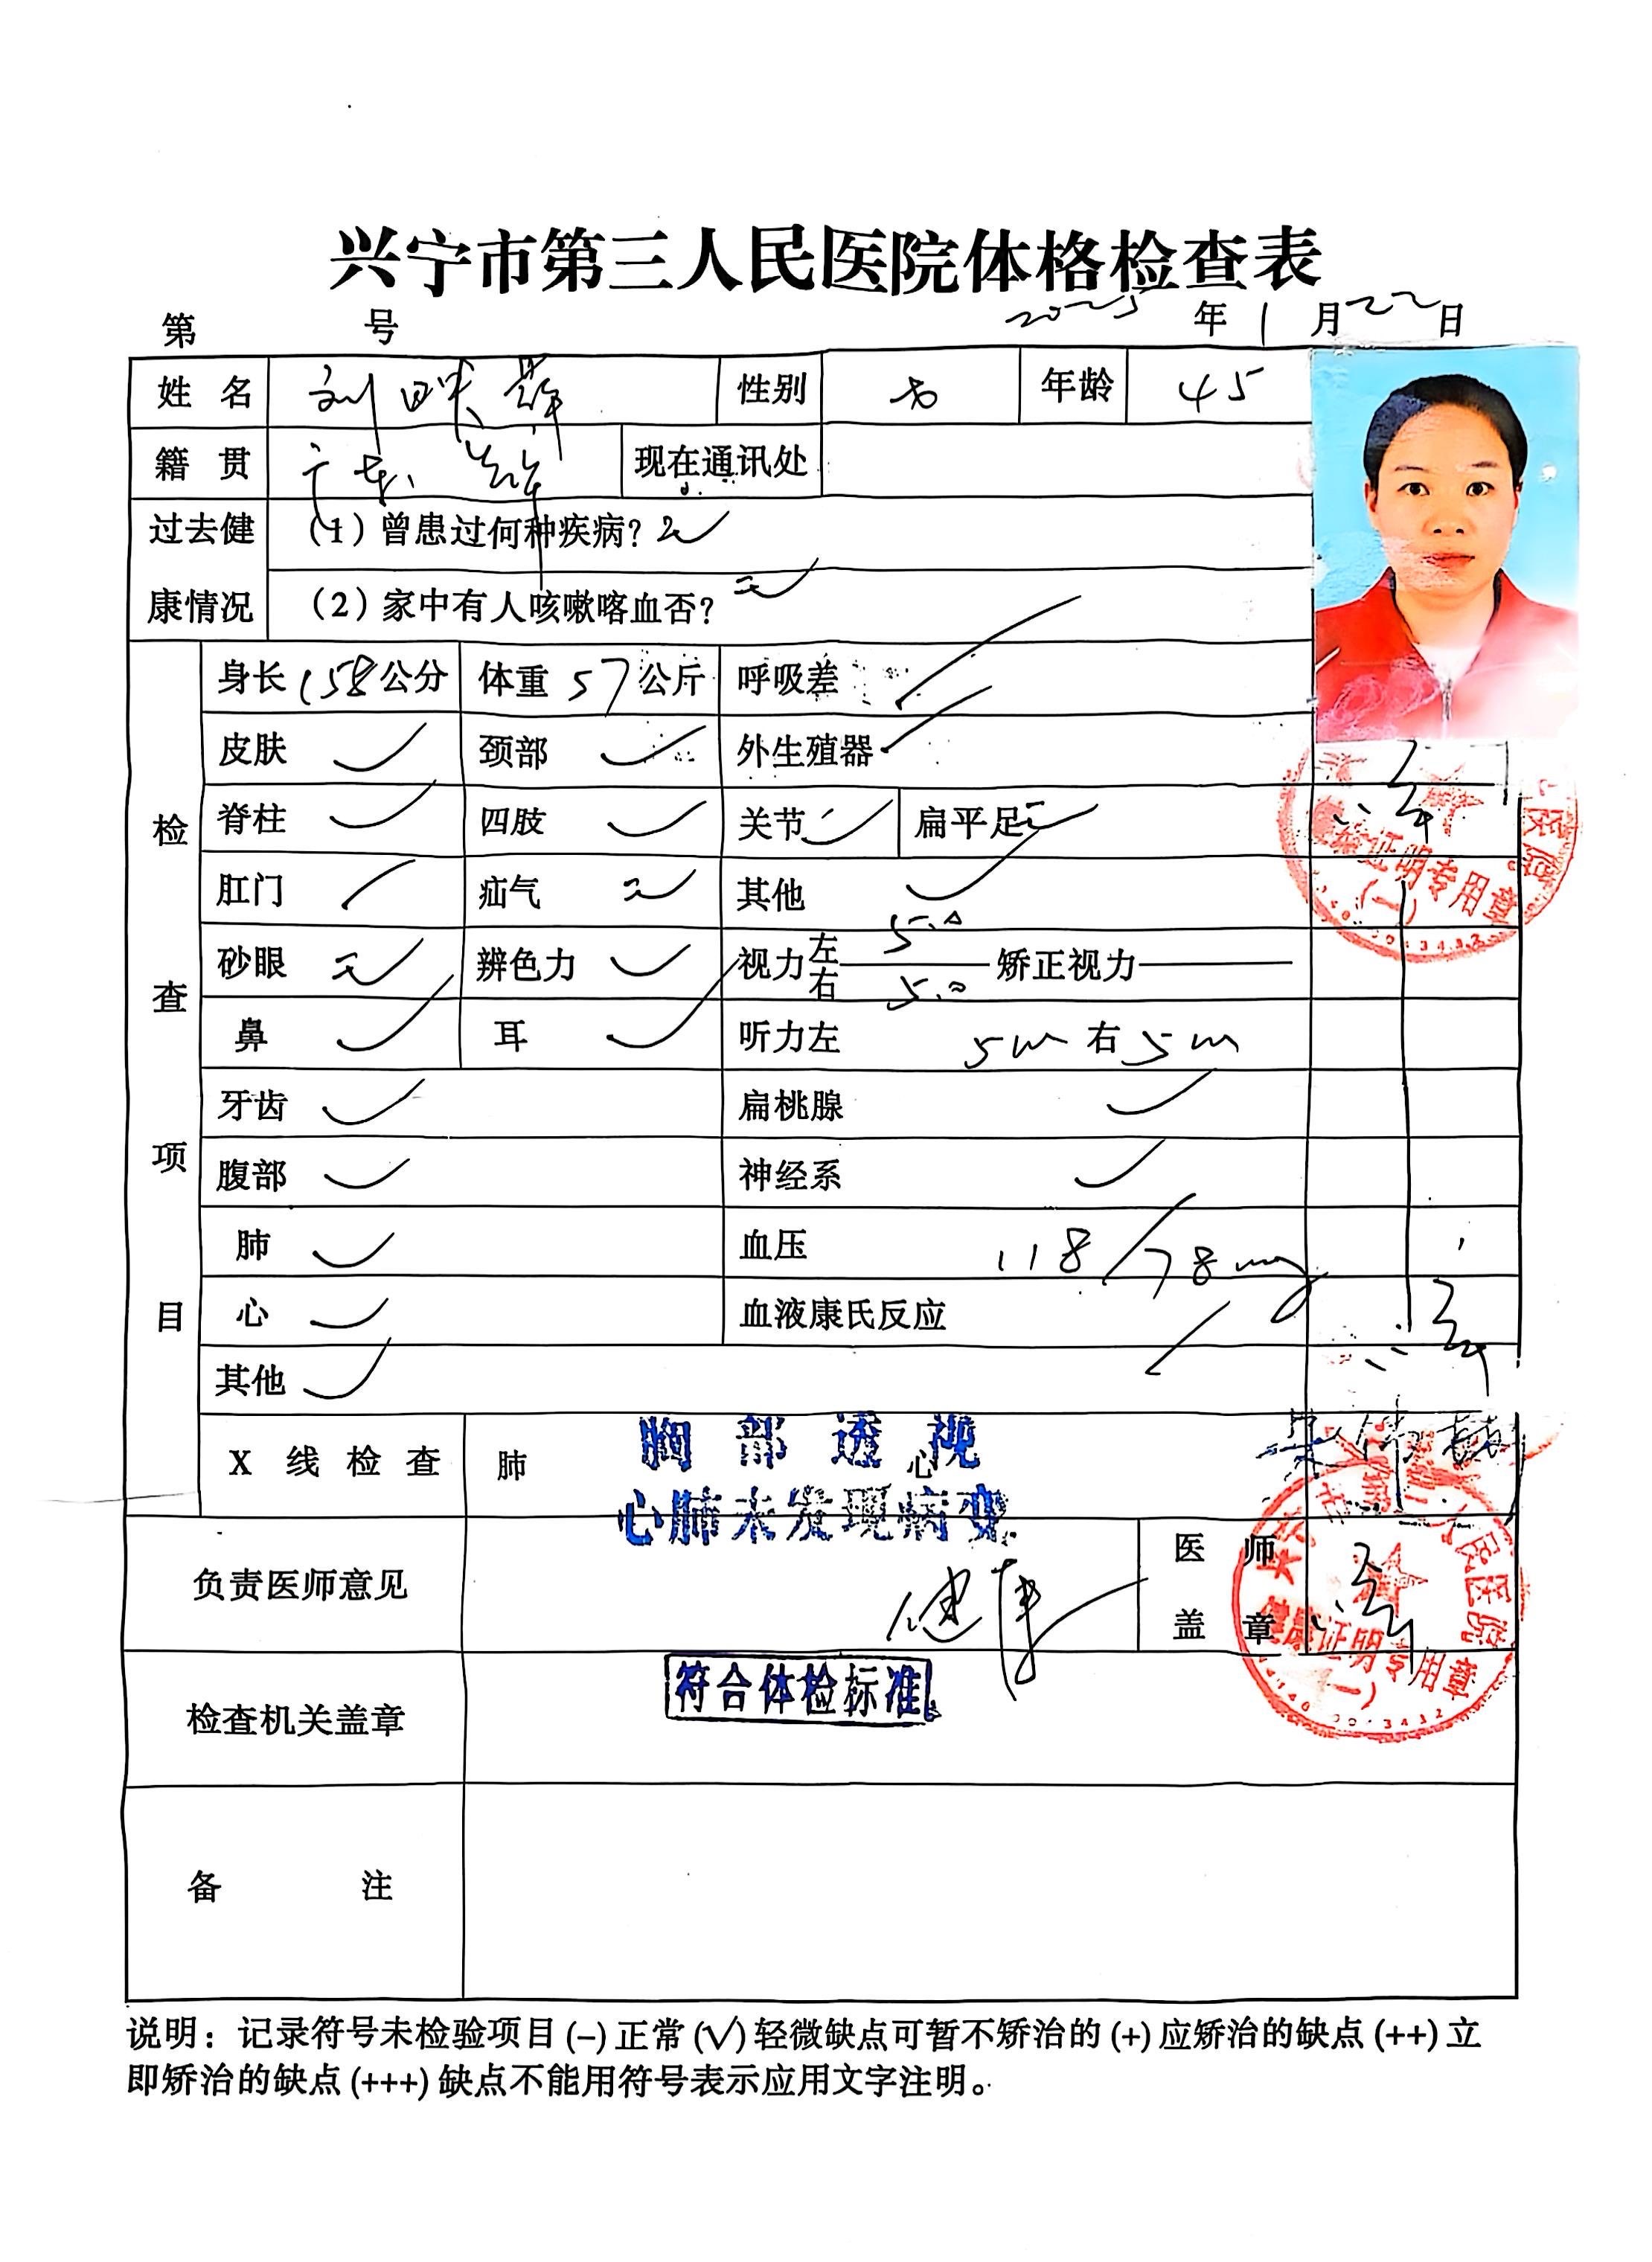 兴宁市第三人民医院体格检查表
第 号 2025 年 1 月 22 日
姓名 刘 性别 女 年龄 45
籍贯 广东 现在通讯处
过去健康情况 (1)曾患过何种疾病? 无
(2)家中有人咳嗽咯血否? 无
检查项目
身长 158 公分 体重 57 公斤 呼吸差 /
皮肤 ✓ 颈部 ✓ 外生殖器 /
脊柱 ✓ 四肢 ✓ 关节 ✓ 扁平足 无
肛门 / 疝气 无 其他 ✓
砂眼 无 辨色力 ✓ 视力 左 5.0 右 5.0 矫正视力
鼻 ✓ 耳 ✓ 听力左 5m 右 5m
牙齿 ✓ 扁桃腺 ✓
腹部 ✓ 神经系 ✓
肺 ✓ 血压 118/78
心 ✓ 血液康氏反应 /
其他 ✓
X线检查 肺 心
胸部透视
心肺未发现病变
负责医师意见 健康 医师盖章
检查机关盖章 符合体检标准
健康证明专用章
(一)
备注
说明：记录符号未检验项目(-)正常(√)轻微缺点可暂不矫治的(+)应矫治的缺点(++)立
即矫治的缺点(+++)缺点不能用符号表示应用文字注明。